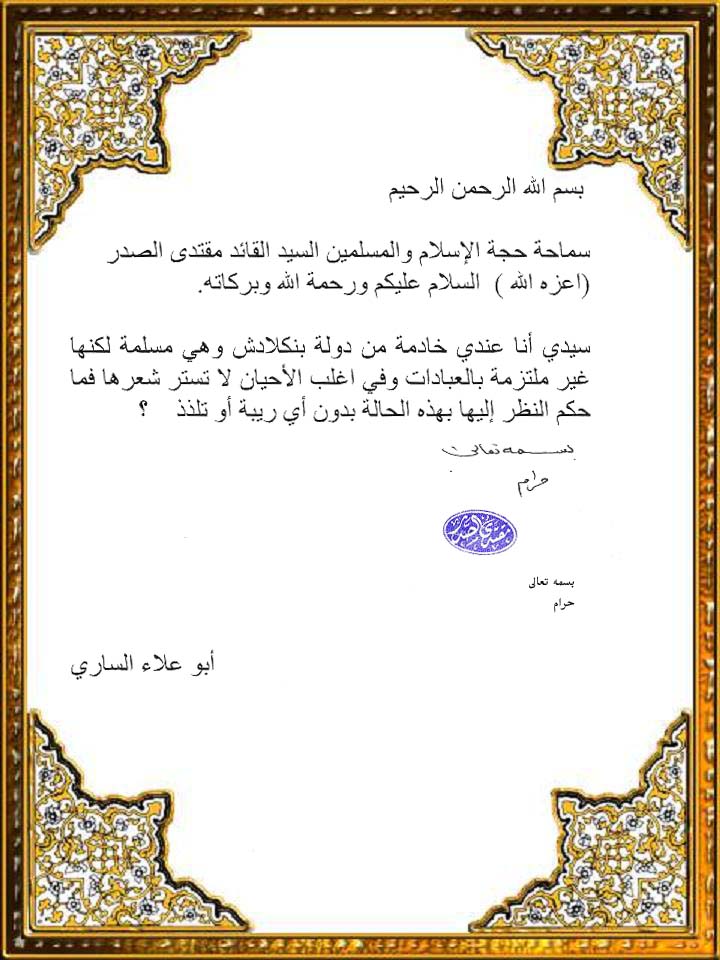 بسم الله الرحمن الرحيم
سماحة حجة الإسلام والمسلمين السيد القائد مقتدى الصدر
(اعزه الله ) السلام عليكم ورحمة الله وبركاته.
سيدي أنا عندي خادمة من دولة بنكلادش وهي مسلمة لكنها
غير ملتزمة بالعبادات وفي اغلب الأحيان لا تستر شعرها فما
حكم النظر إليها بهذه الحالة بدون أي ريبة أو تلذذ ؟
بسمه تعالى
حرام
مقتدى الصدر
بسمه تعالى
حرام
أبو علاء الساري